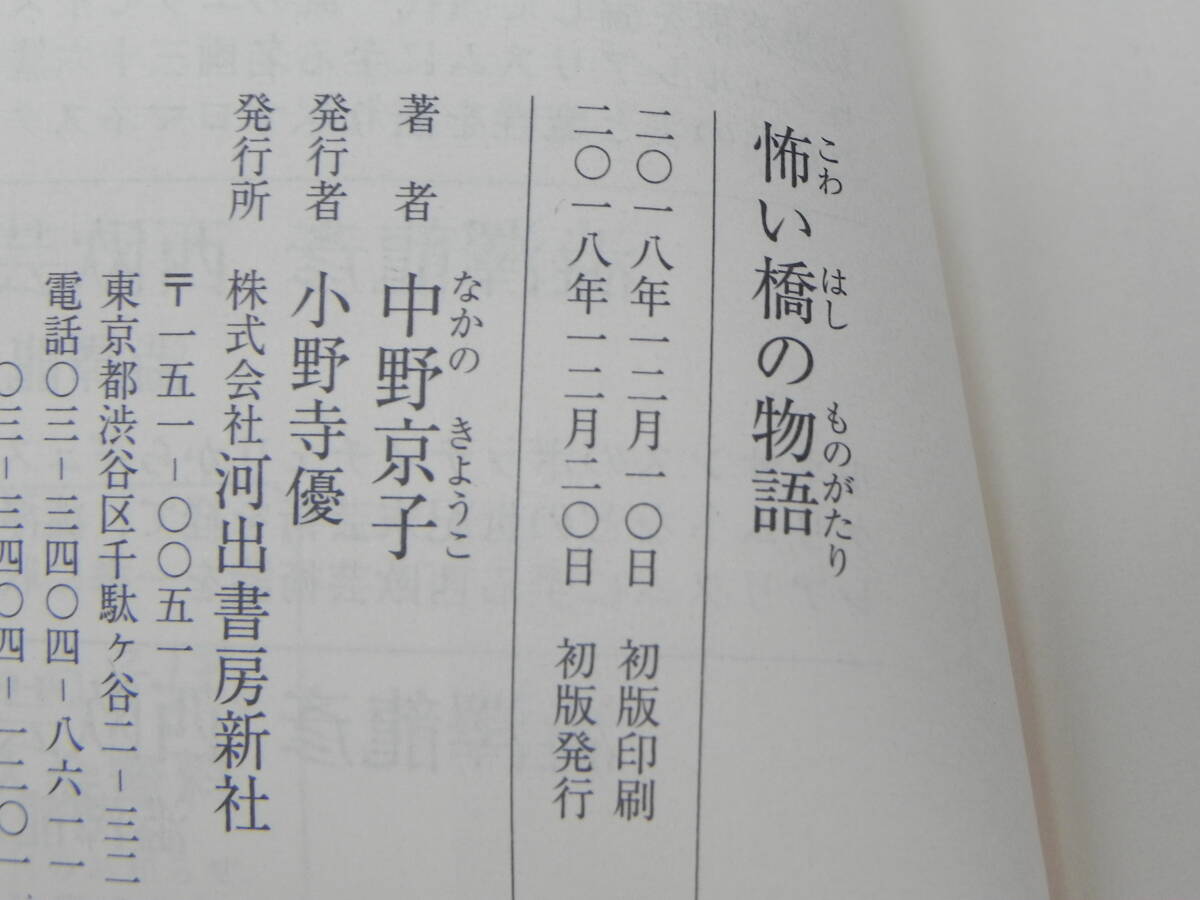 怖い橋の物語
こわ はし ものがたり
二〇一八年一二月一〇日 初版印刷
二〇一八年一二月二〇日 初版発行
著者 中野京子
なかの きようこ
発行者 小野寺優
発行所 株式会社河出書房新社
〒一五一-〇〇五一
東京都渋谷区千駄ヶ谷二-三二
電話〇三-三四〇四-八六一一
〇三-三四〇四-一二〇一